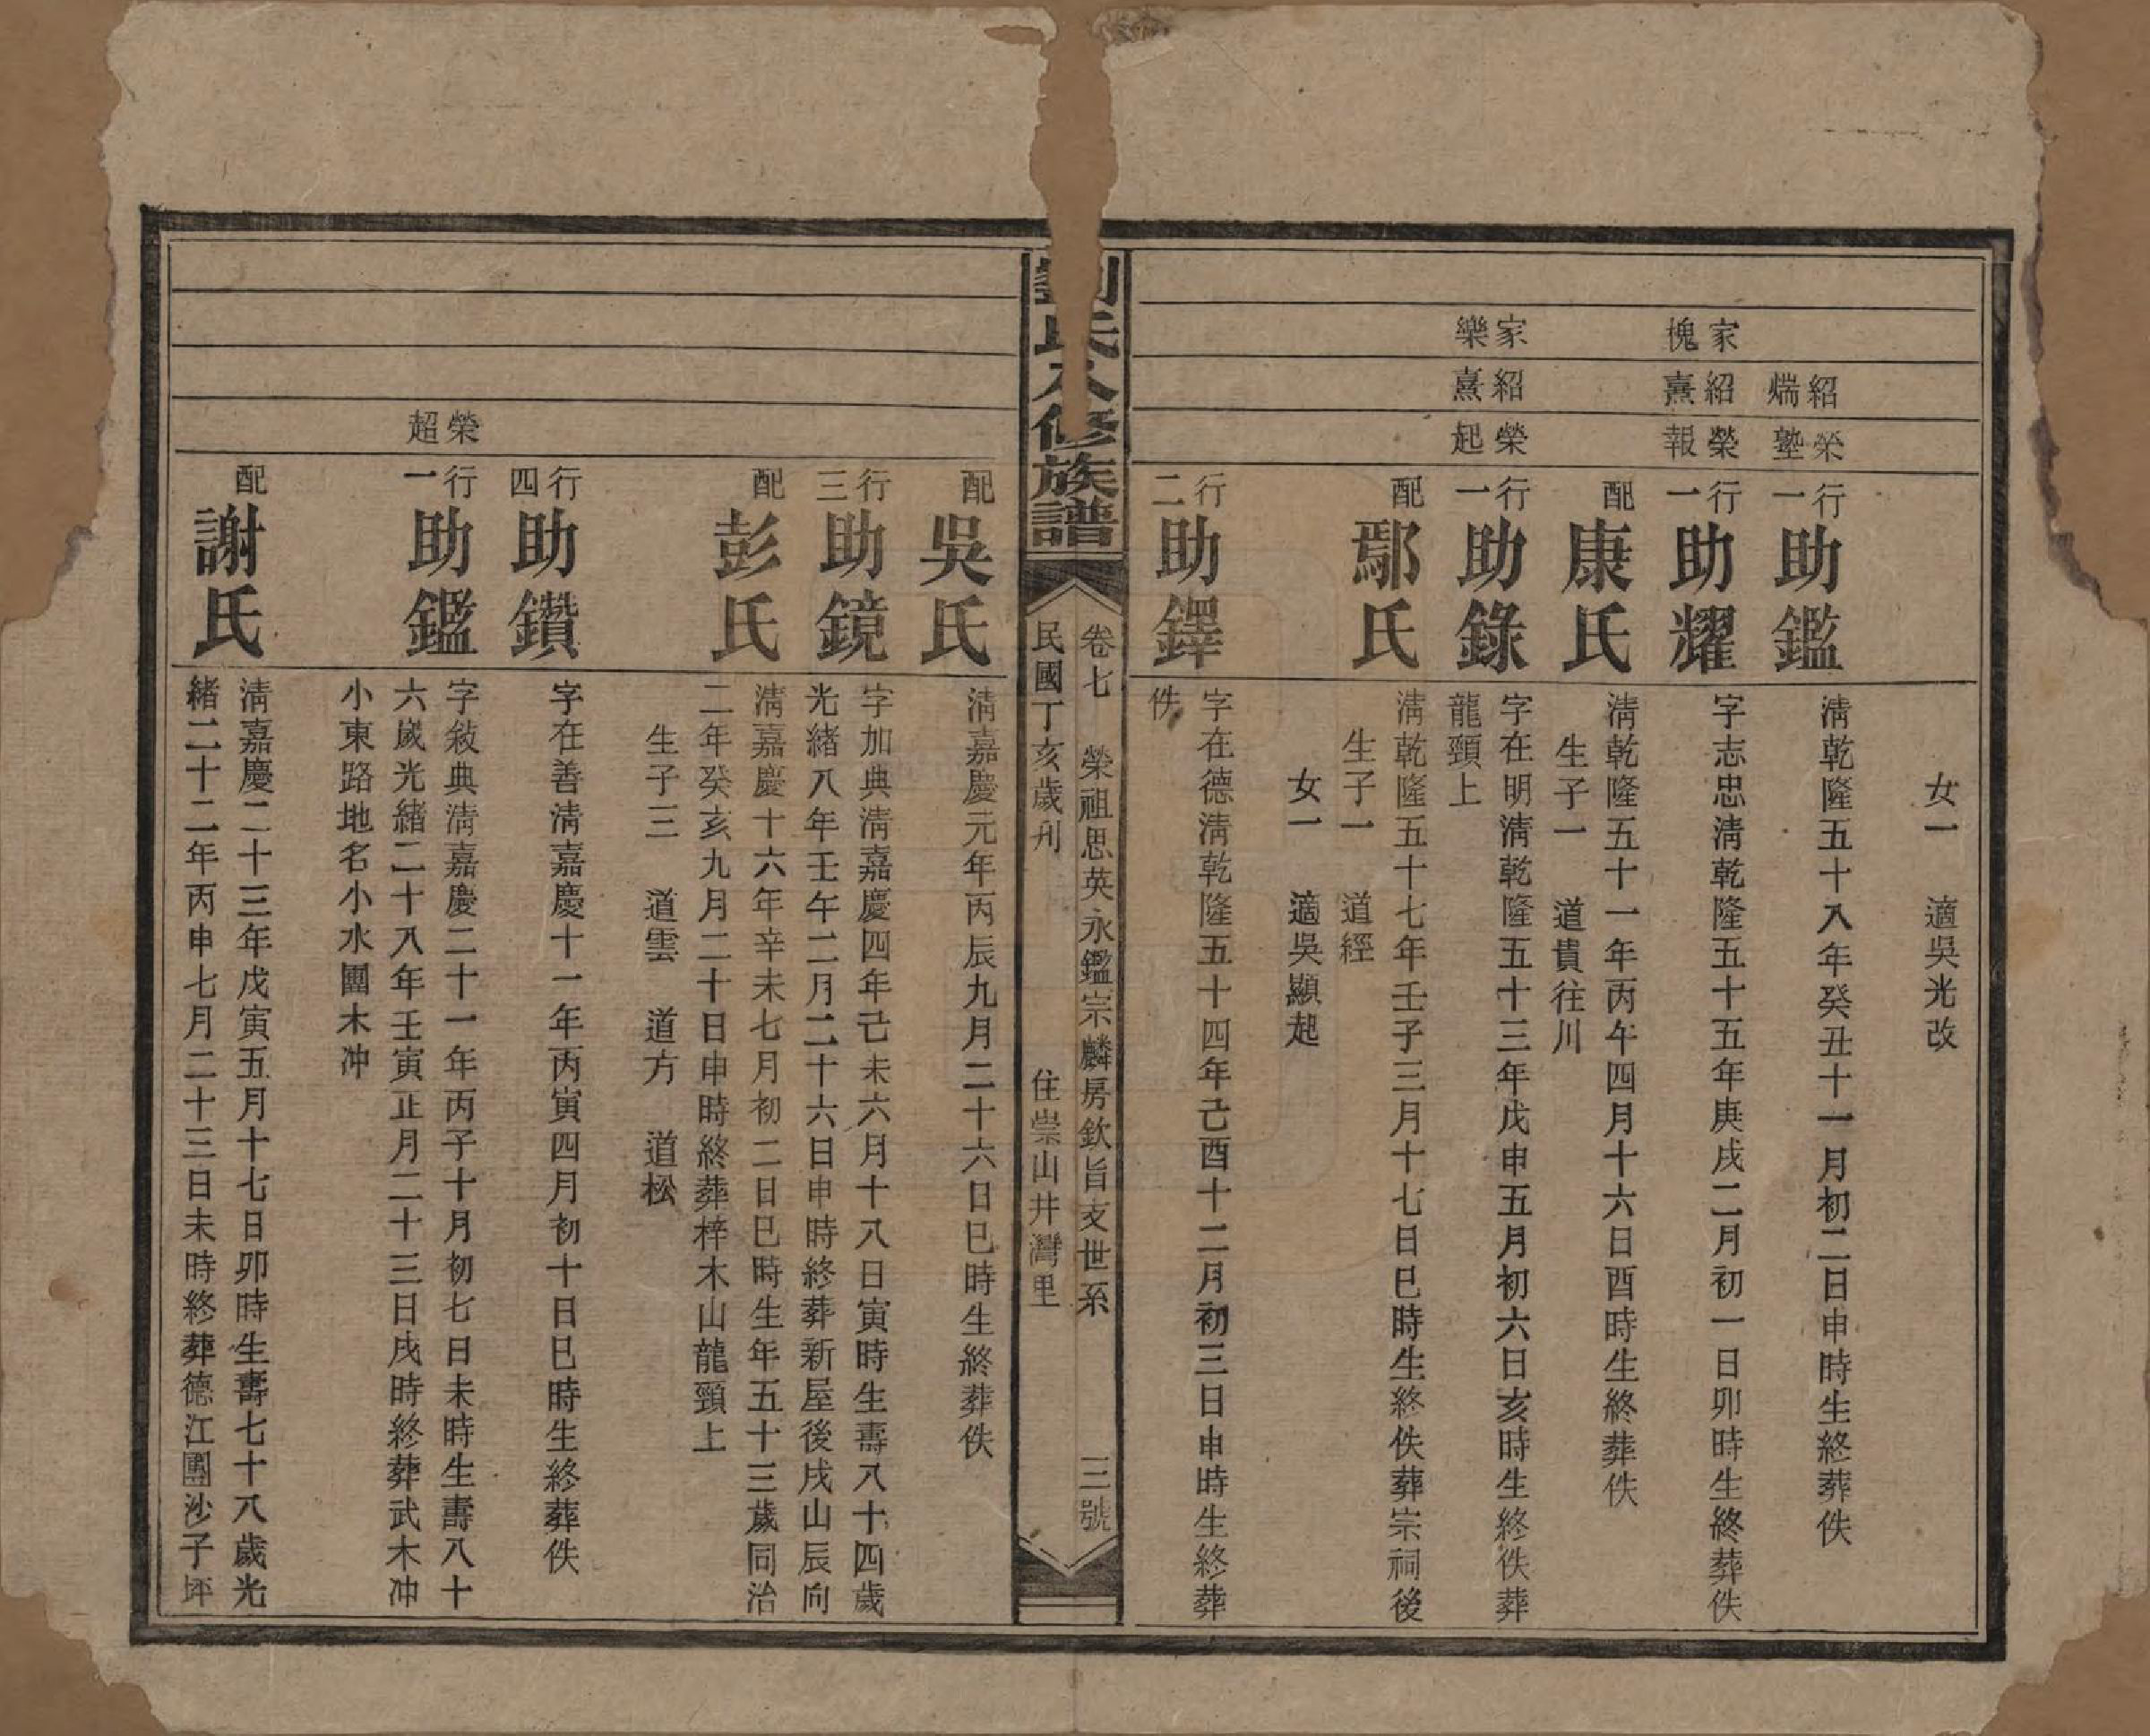 女一　適吳光改
紹煓
榮塾
行一
助鑑
清乾隆五十八年癸丑十一月初二日申時生終葬佚
家槐
紹熹
榮報
行一
助耀
字志忠清乾隆五十五年庚戌二月初一日卯時生終葬佚
配
康氏
清乾隆五十一年丙午四月十六日酉時生終葬佚
生子一　道貴往川
家樂
紹熹
榮起
行一
助錄
字在明清乾隆五十三年戊申五月初六日亥時生終佚葬
龍頸上
配
鄢氏
清乾隆五十七年壬子三月十七日巳時生終佚葬宗祠後
生子一　道經
女一　適吳顯起
行二
助鐸
字在德清乾隆五十四年己酉十二月初三日申時生終葬
佚
劉氏八修族譜
卷七　榮祖思英永鑑宗麟房欽旨支世系　三號
民國丁亥歲刋　住崇山井灣里
配
吳氏
清嘉慶元年丙辰九月二十六日巳時生終葬佚
行三
助鏡
字加典清嘉慶四年己未六月十八日寅時生壽八十四歲
光緒八年壬午二月二十六日申時終葬新屋後戌山辰向
配
彭氏
清嘉慶十六年辛未七月初二日巳時生年五十三歲同治
二年癸亥九月二十日申時終葬梓木山龍頸上
生子三　道雲　道方　道松
行四
助鑽
字在善清嘉慶十一年丙寅四月初十日巳時生終葬佚
榮超
行一
助鑑
字敍典清嘉慶二十一年丙子十月初七日未時生壽八十
六歲光緒二十八年壬寅正月二十三日戌時終葬武木冲
小東路地名小水團木冲
配
謝氏
清嘉慶二十三年戊寅五月十七日卯時生壽七十八歲光
緒二十二年丙申七月二十三日未時終葬德江團沙子坪